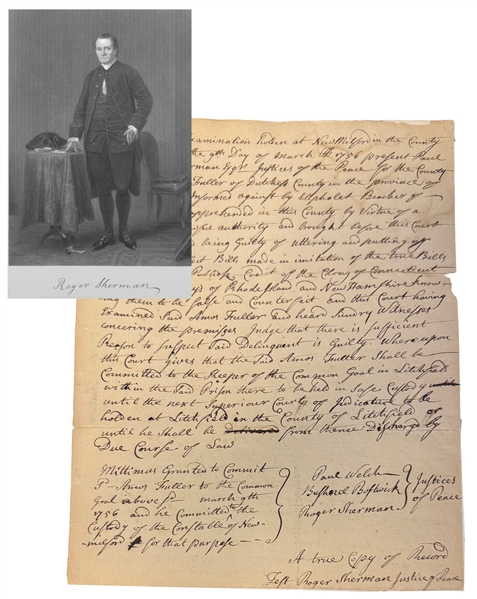 Roger Sherman
Examination taken at New Milford in the County
the 9th Day of March AD 1756 present Paul
man Esqrs Justices of the Peace for the County
Fuller of Dutchess County in the province of
informed against by Eliphalet Beacher of
apprehended in this County by Virtue of a
authority and brought before this Court
being Guilty of Uttering and putting of
Bills made in imitation of the true Bills
Publick Credit of the Colony of Connecticut
of Rhode Island and New Hampshire know
ing them to be false and Counterfeit and this Court having
Examined Said Amos Fuller and heard Sundry Witnesses
concering the premises Judge that there is sufficient
Reason to Suspect Said Delinquent is Guilty. Where upon
this Court gives that the Said Amos Fuller Shall be
Committed to the Keeper of the Common Goal in Litchfield
within the Said Prison there to be held in Safe Custody
until the next Superiour Court of Judicature to be
holden at Litchfield in the County of Litchfield or
until he Shall be delivered from thence Discharged by
Due Course of Law
Mittimus Granted to Commit
Sd Amos Fuller to the Common
Goal above sd march 9th
1756 and he Committed to the
Custody of the Constable of New-
milford for that purpose
Paul Welch
Bushnel Bostwick
Roger Sherman
Justices
of Peace
A true Copy of Record
Test Roger Sherman Justice of Peace